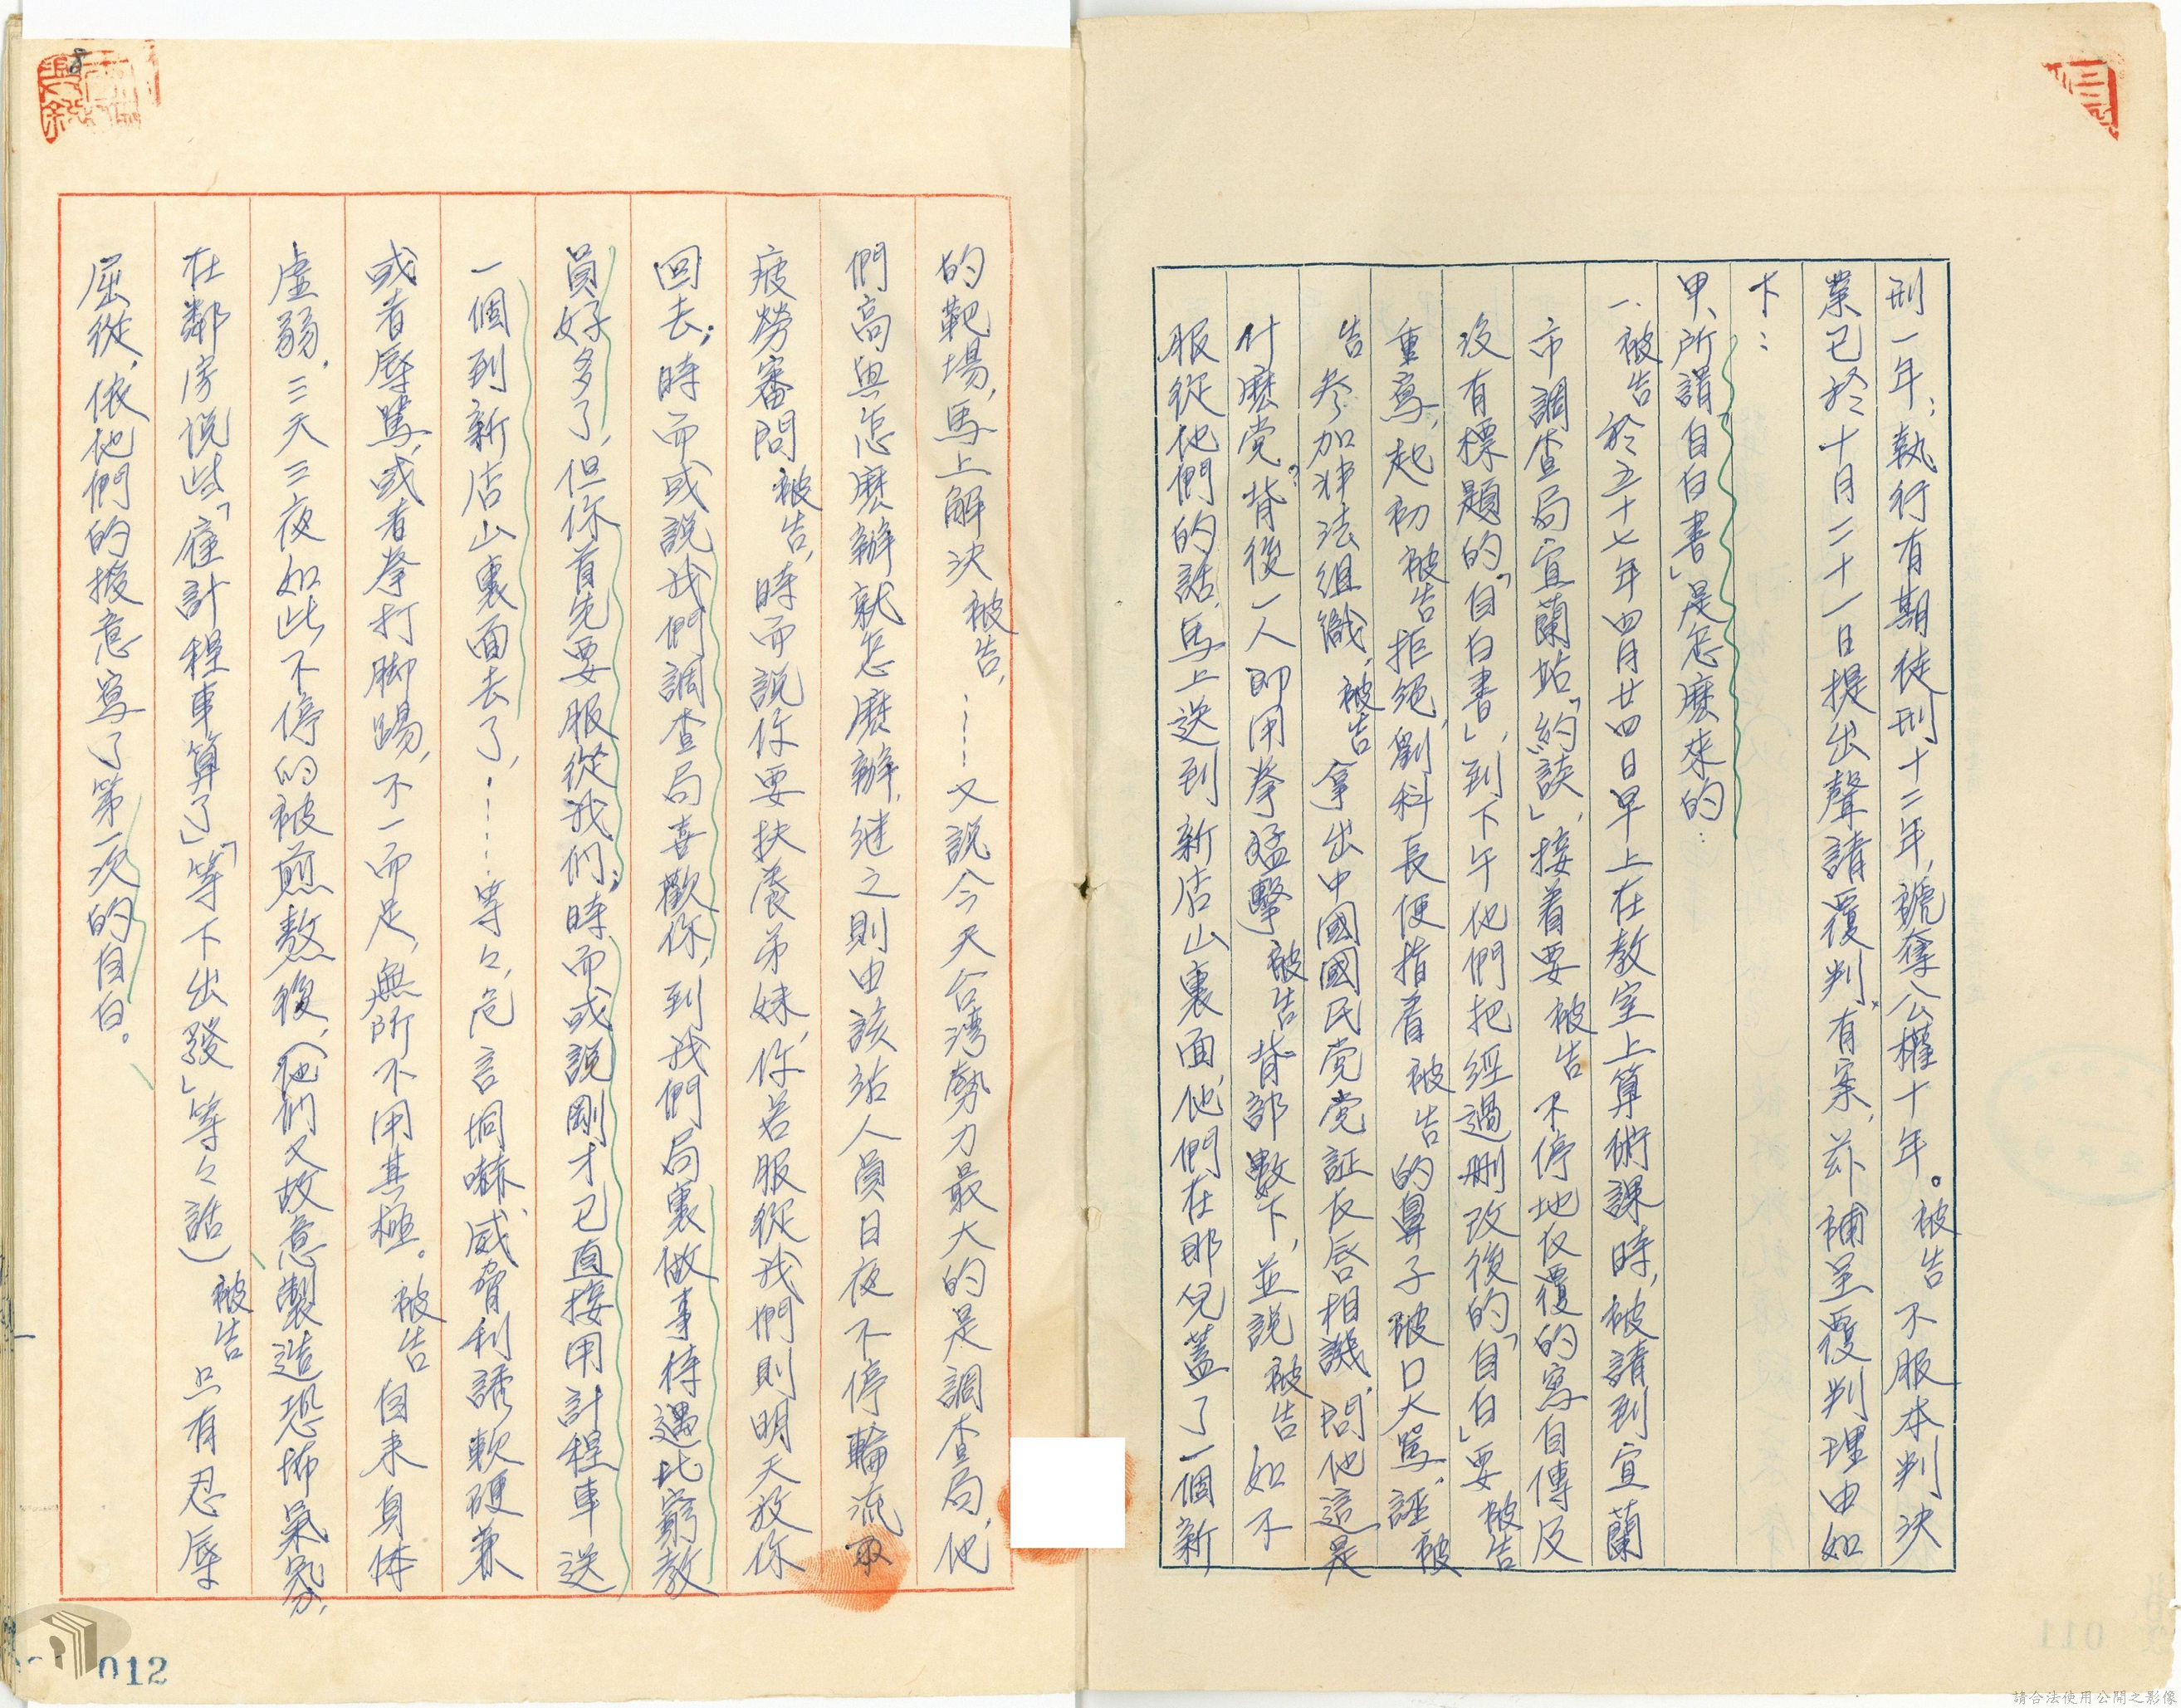 刑一年；執行有期徒刑十二年，褫奪公權十年。被告不服本判決
業已於十月二十一日提出聲請覆判，有案，茲補呈覆判理由如
下：
甲、所謂「自白書」是怎麼來的：
一、被告於五十七年四月廿四日早上在教室上算術課時，被請到宜蘭
市調查局宜蘭站「約談」，接着要被告不停地反覆的寫自傳及
沒有標題的「自白書」，到下午他們把經過刪改後的「自白」要被告
重寫，起初被告拒絕，劉科長便指着被告的鼻子破口大罵，誣被
告參加非法組織，被告拿出中國國民党党証反唇相譏，問他這是
什麼党？背後一人即用拳猛擊被告背部數下，並說被告如不
服從他們的話，馬上送到新店山裏面，他們在那兒蓋了一個新
的靶場，馬上解決被告，……又說今天台湾勢力最大的是調查局，他
們高興怎麼辦就怎麼辦，继之則由該站人員日夜不停輪流取
疲勞審問被告，時而說你要扶養弟妹，你若服從我們則明天放你
回去；時而或說我們調查局喜歡你，到我們局裏做事待遇比窮教
員好多了，但你首先要服從我们；時而或說剛才已直接用計程車送
一個到新店山裏面去了，……等々，危言恫嚇、威脅利誘軟硬兼
或者辱罵，或者拳打脚踢，不一而足，無所不用其極。被告自来身体
虛弱，三天三夜如此不停的被煎熬後，（他们又故意製造恐怖氣氛，
在鄰房说些「雇計程車算了」「等下出發」等々話）被告只有忍辱
屈從，依他們的授意寫了第一次的自白。
8
012
011
請合法使用公開之影像